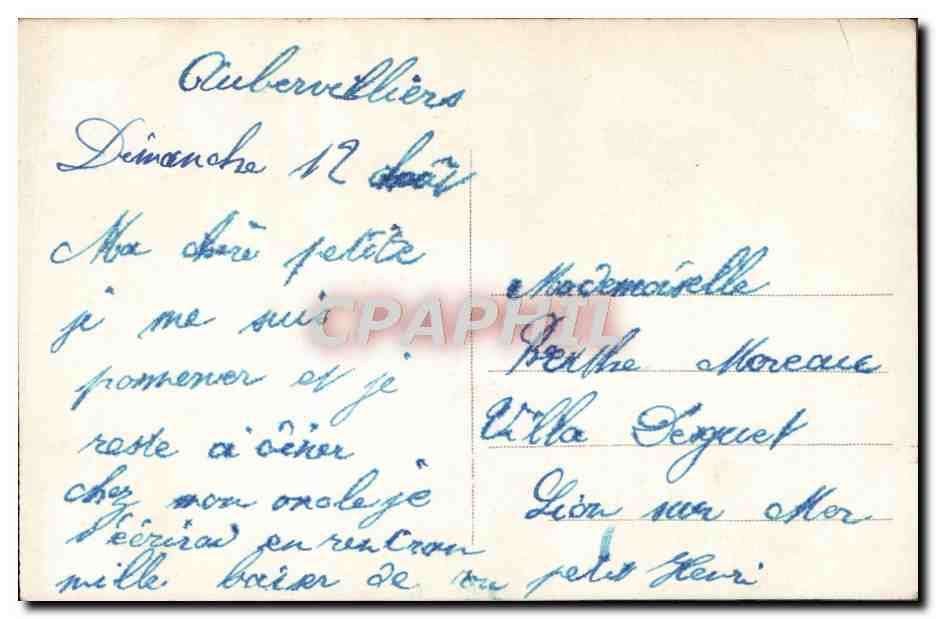 Aubervilliers
Dimanche 12 Août
Ma chère petite
je me suis
promener et je
reste à dîner
chez mon oncle je
t'écrirai en rentran
mille baiser de ton petit Henri
Mademoiselle
Berthe Moreau
Villa
Lion sur Mer
CPAPHIL